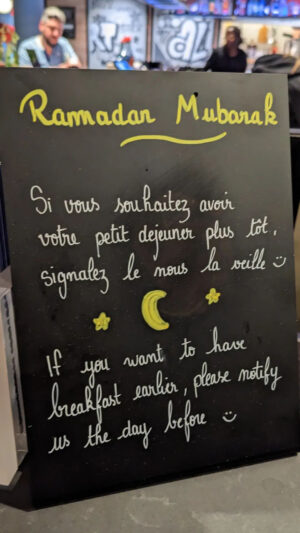 Ramadan Mubarak
Si vous souhaitez avoir
votre petit dejeuner plus tôt,
signalez le nous la veille :)
If you want to have
breakfast earlier, please notify
us the day before :)